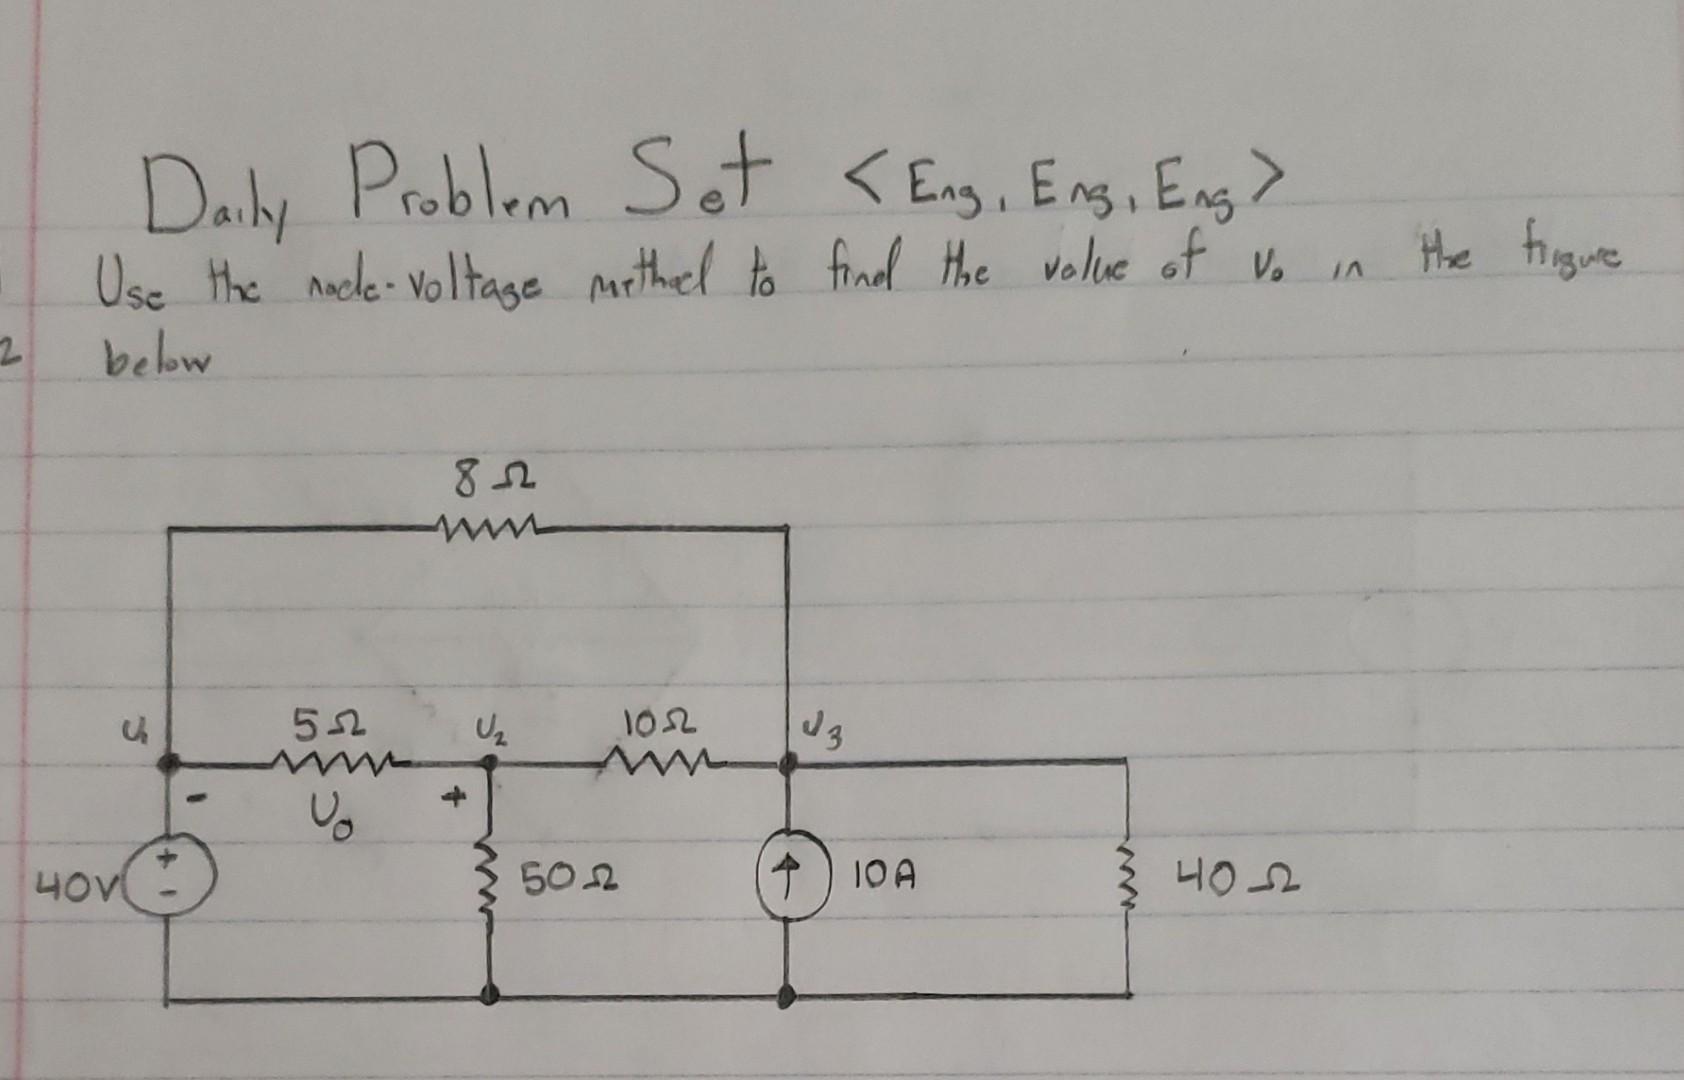 Daily Problem Set <Eng, Eng, Eng>
Use the node-voltage method to find the value of v₀ in the figure
2 below
8 Ω
v₁ 5Ω v₂ 10Ω v₃
- v₀ +
40V + - 50Ω 10A 40Ω